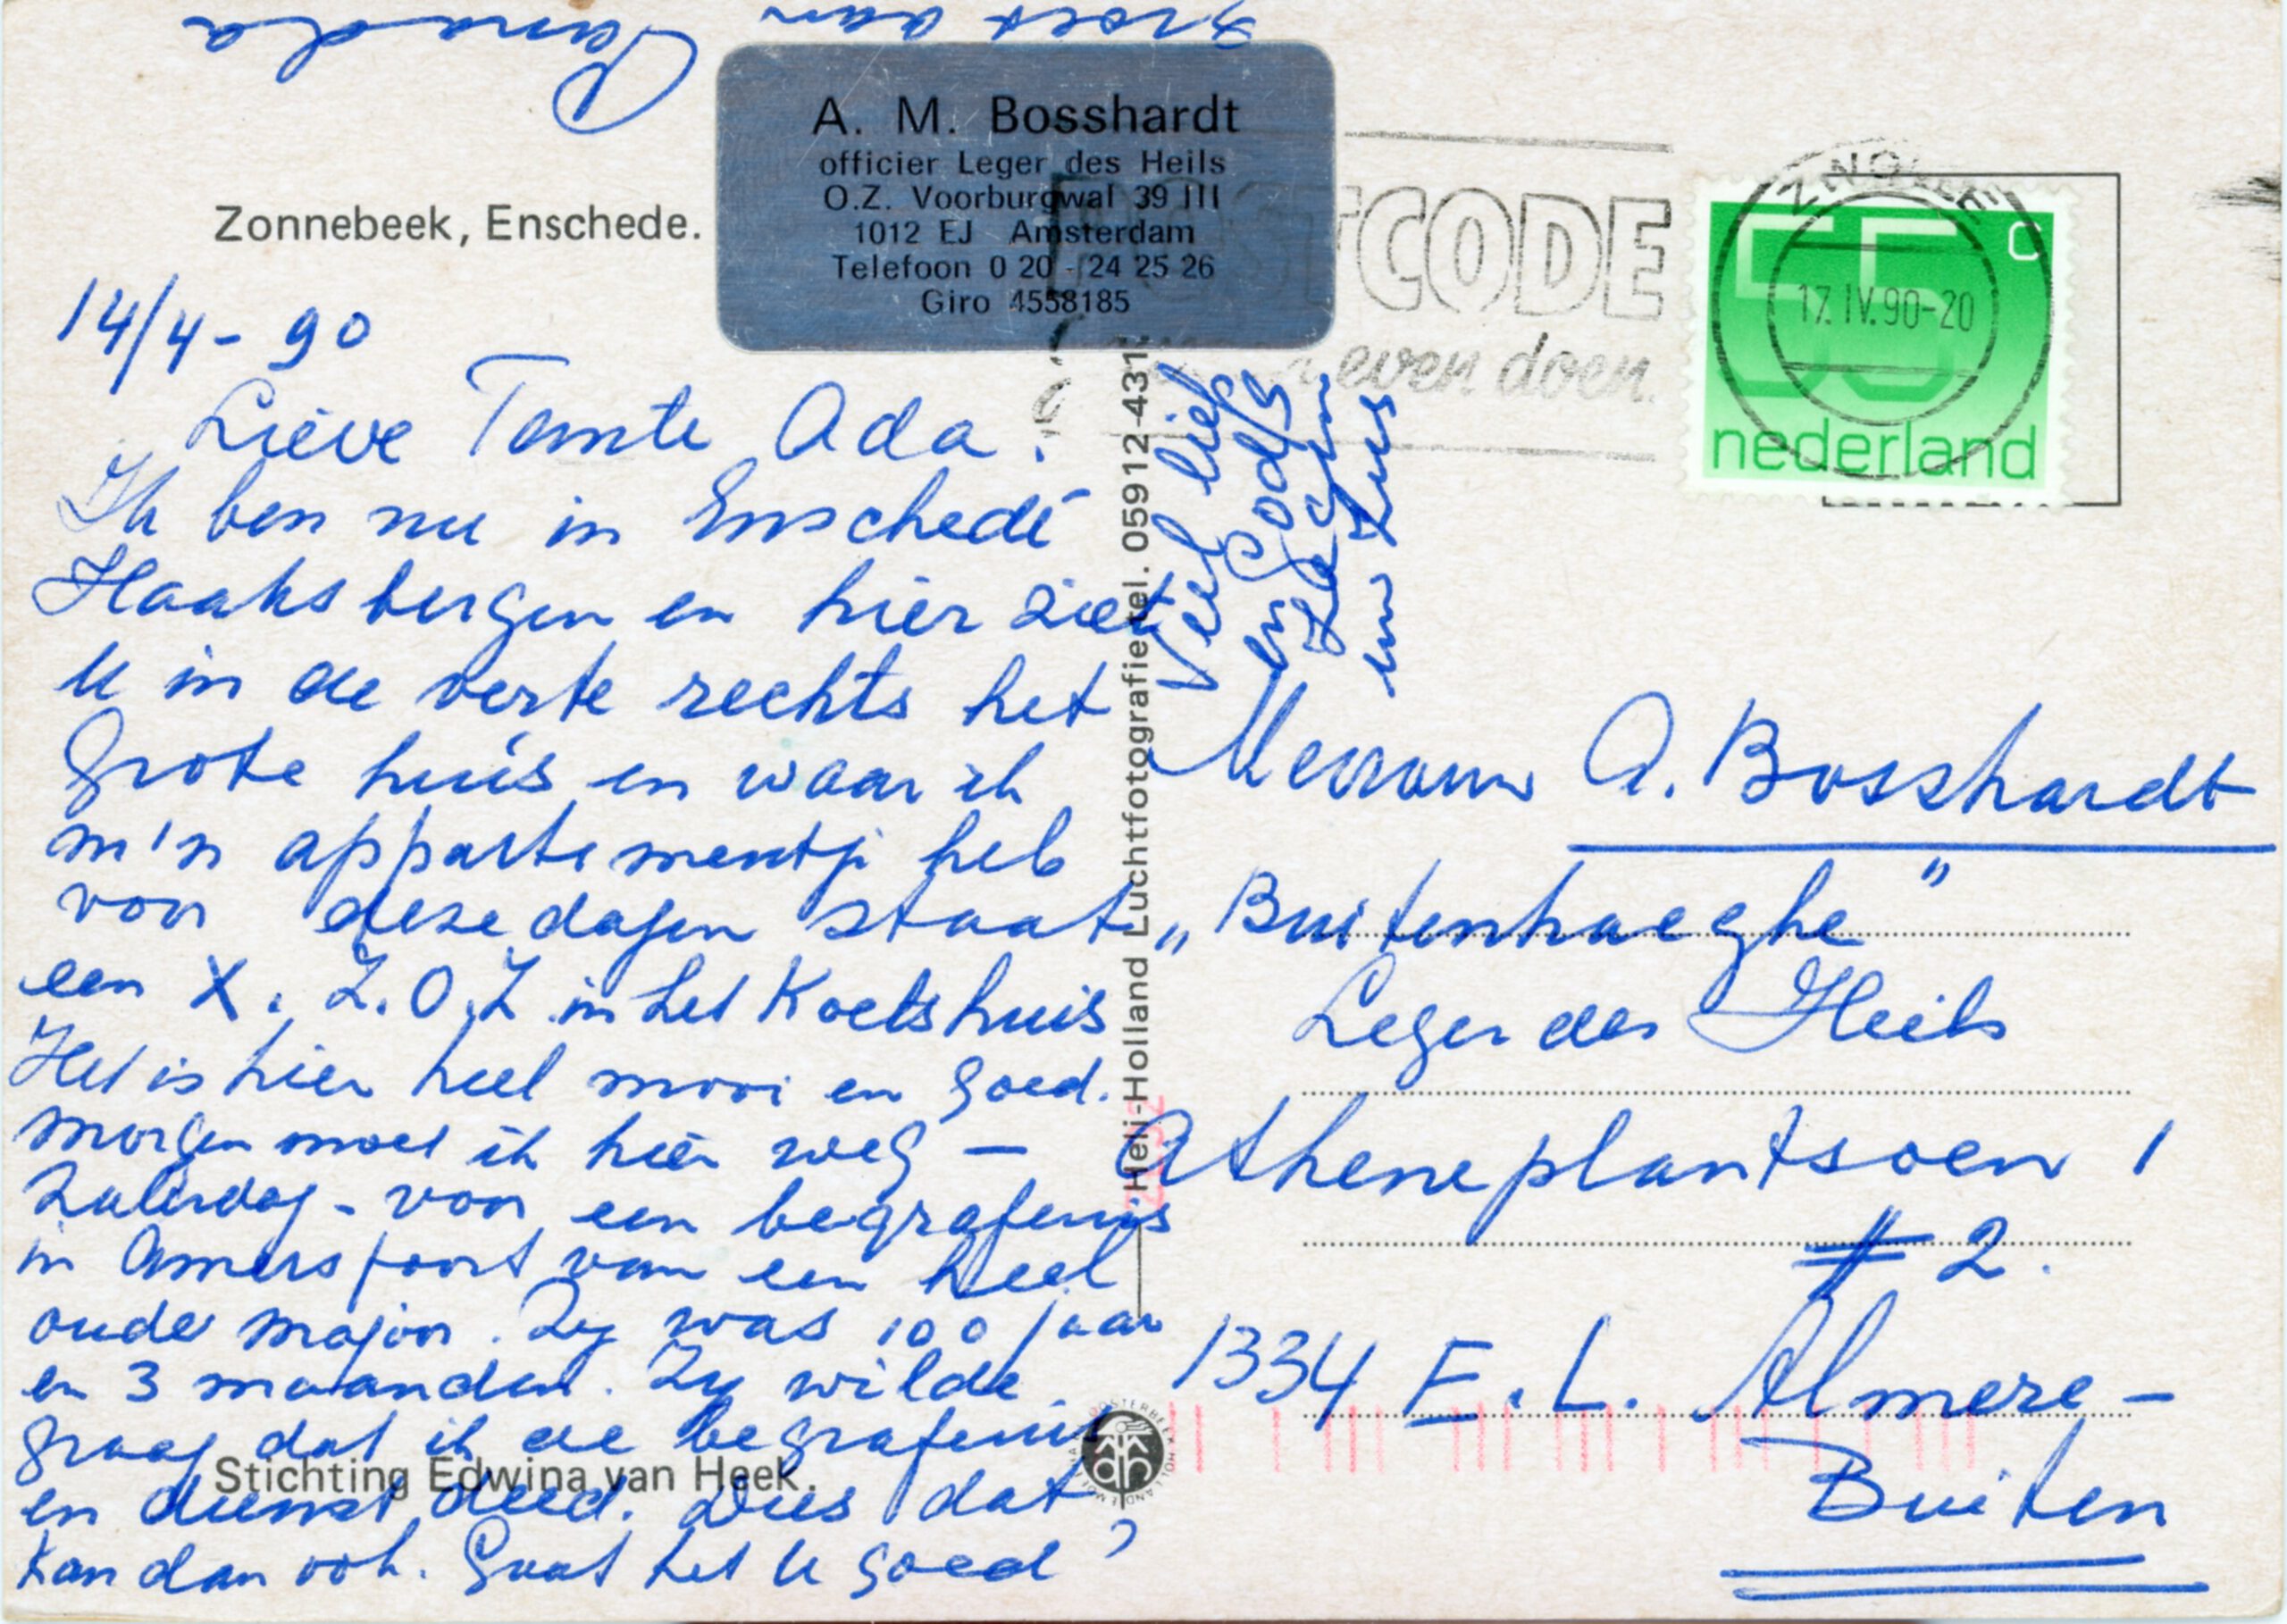 groet aan
Canada
A. M. Bosshardt
officier Leger des Heils
O.Z. Voorburgwal 39 III
1012 EJ Amsterdam
Telefoon 0 20 - 24 25 26
Giro 4558185
Zonnebeek, Enschede.
14/4 - 90
Lieve Tante Ada.
Ik ben nu in Enschedé
Haaksbergen en hier ziet
U in de verte rechts het
Grote huis en waar ik
m'n appartementje heb
voor deze dagen staat
een X. Z.O.Z in het Koetshuis
Het is hier heel mooi en goed.
morgen moet ik hier weg -
Zaterdag - voor een begrafenis
in Amersfoort van een heel
oude majoor. Zy was 100 jaar
en 3 maanden. Zy wilde
graag dat ik de begrafenis
en dienst deed. Dus dat
kan dan ook. Gaat het U goed?
Stichting Edwina van Heek.
Veel lief
en Gods
zegen
en Zus
Heli-Holland Luchtfotografie tel. 05912-431
POSTCODE
even doen.
ZWOLLE
17.IV.90-20
55 c
nederland
Mevrouw A. Bosshardt
„Buitenhaeghe"
Leger des Heils
Atheneplantsoen 1
# 2.
1334 E.L. Almere -
Buiten